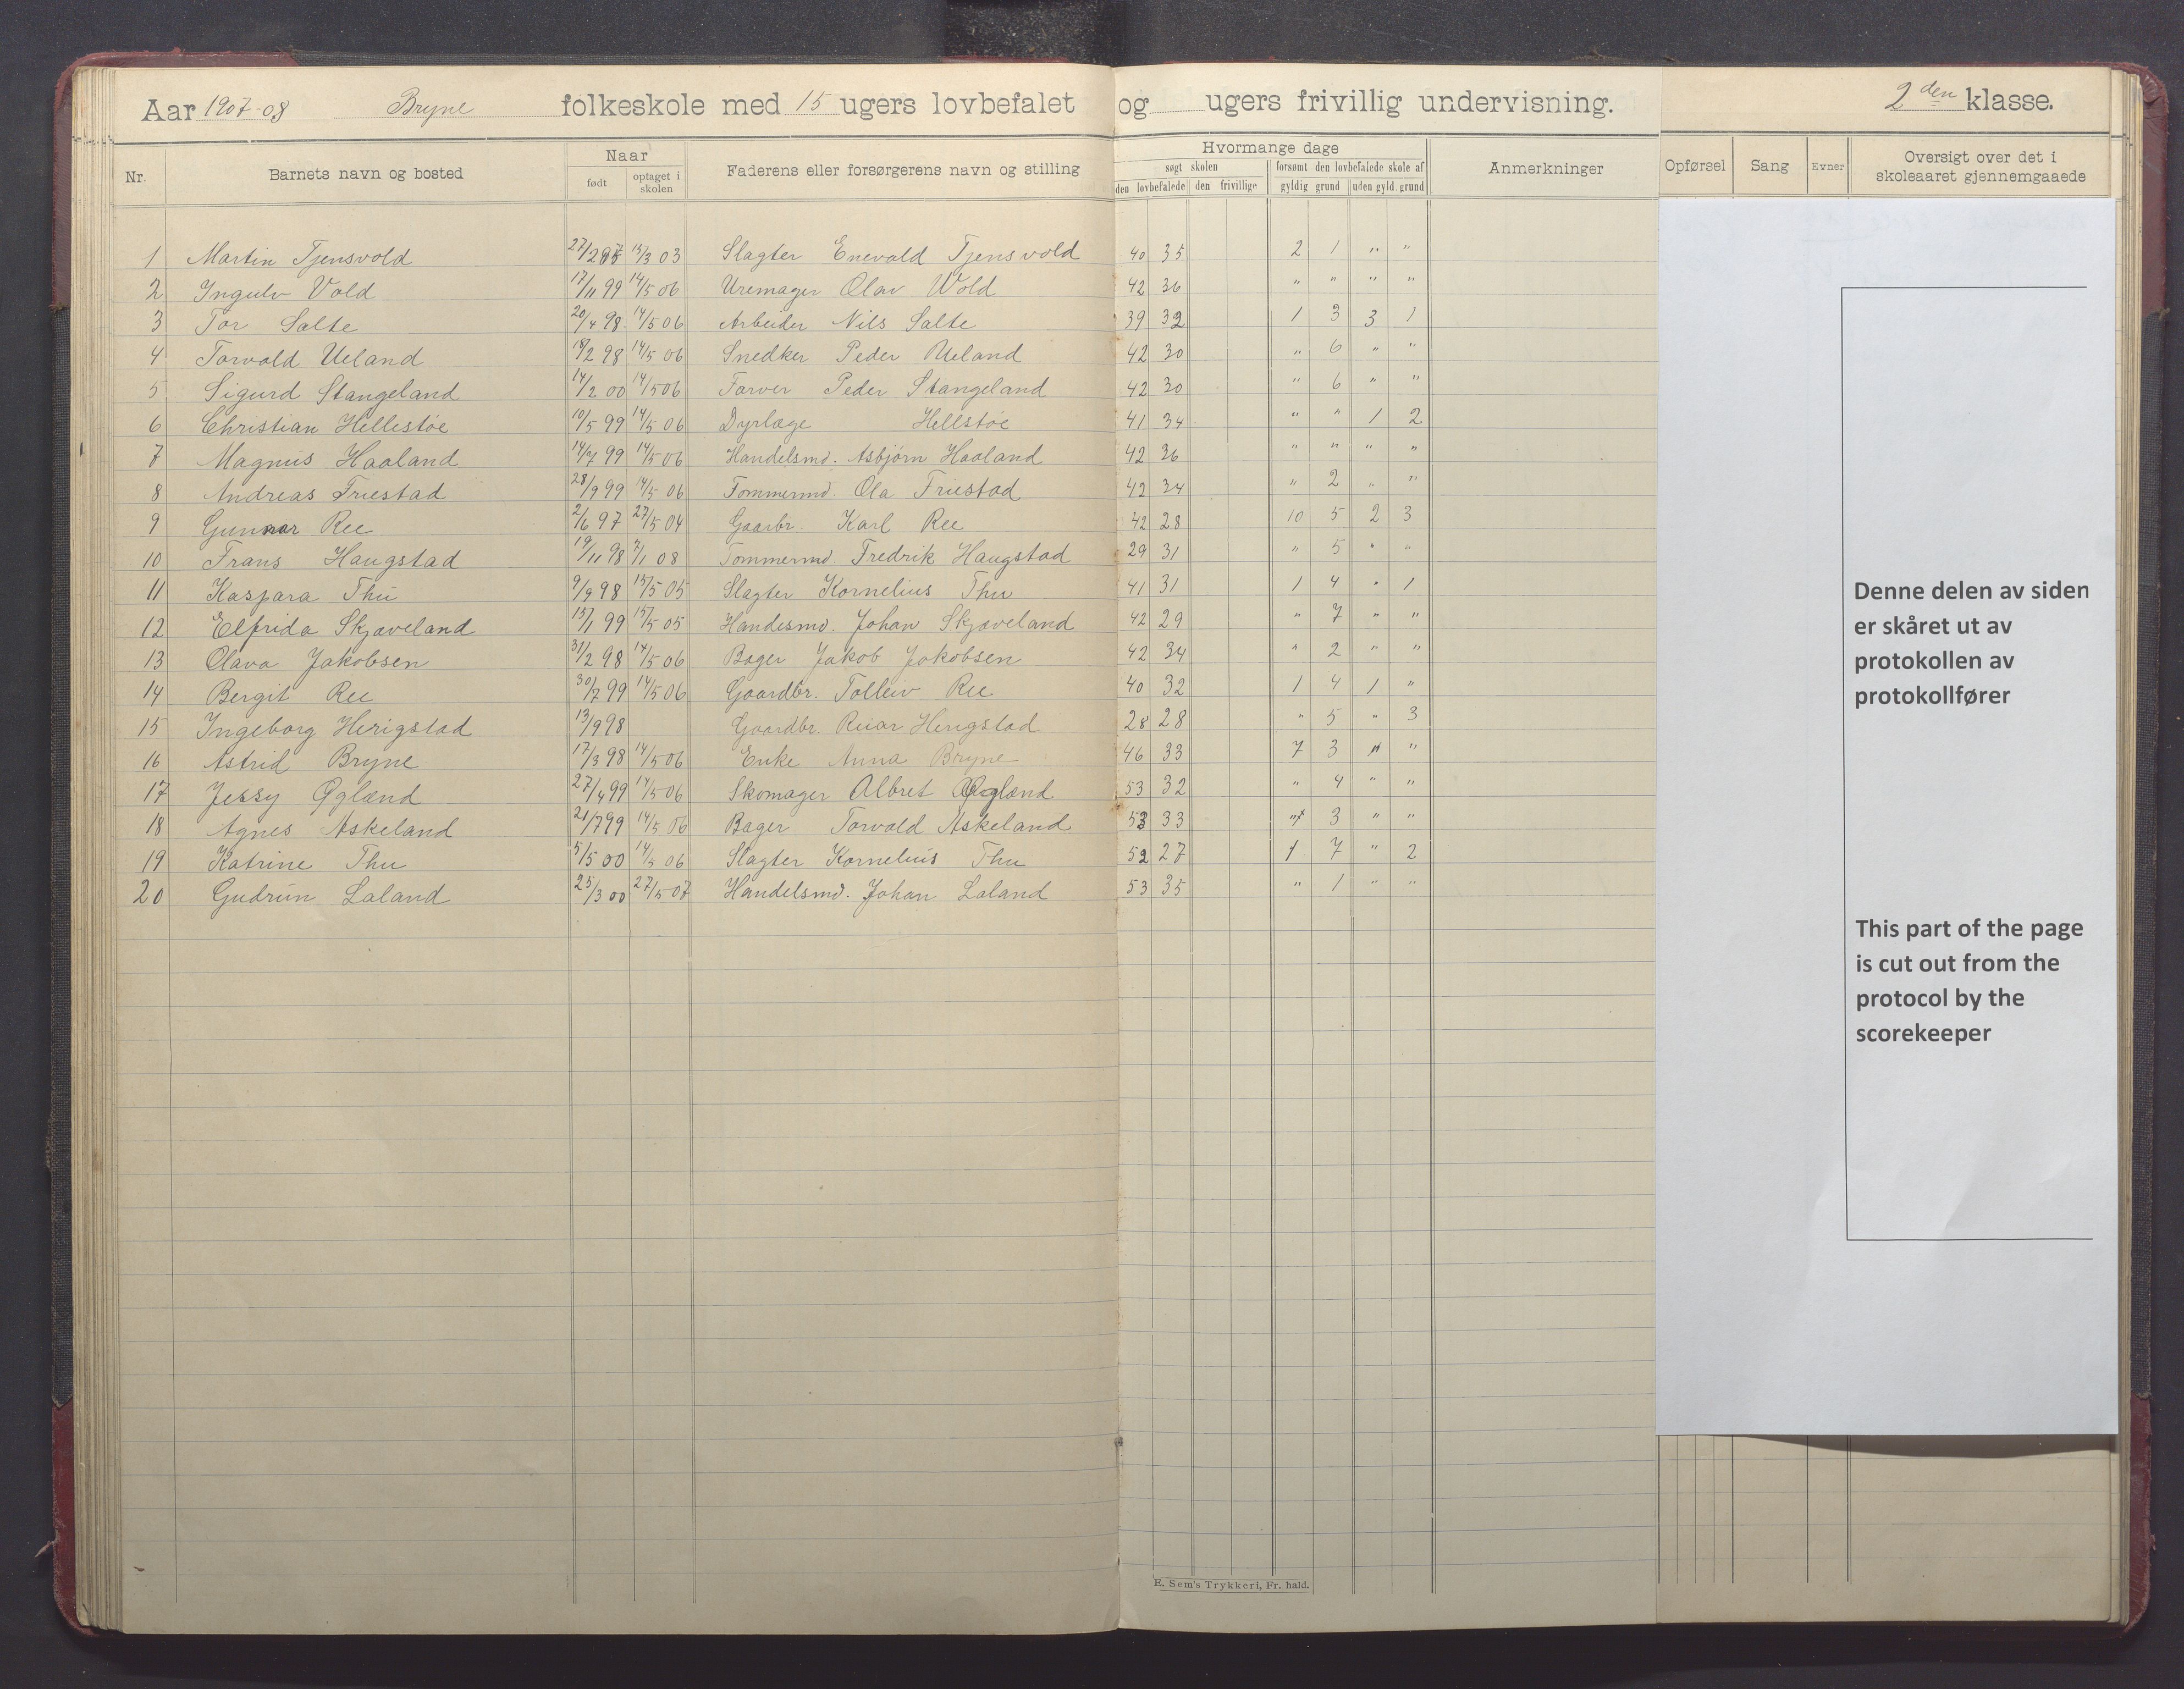 Aar 1907-08 Bryne folkeskole med 15 ugers lovbefalet og ugers frivillig undervisning. 2den klasse.
Nr. Barnets navn og bosted Naar født optaget i skolen Faderens eller forsørgerens navn og stilling Hvormange dage søgt skolen den lovbefalede den frivillige forsømt den lovbefalede skole af gyldig grund uden gyld. grund Anmerkninger Opførsel Sang Evner Oversigt over det i skoleaaret gjennemgaaede
1 Martin Tjensvold 27/2 97 15/3 03 Slagter Enevald Tjensvold 40 35 2 1 " "
2 Ingulv Vold 17/11 99 14/5 06 Uremager Olav Wold 42 36 " " " "
3 Tor Salte 20/4 98 14/5 06 Arbeider Nils Salte 39 32 1 3 3 1
4 Torvald Ueland 18/2 98 14/5 06 Snedker Peder Ueland 42 30 " 6 " "
5 Sigurd Stangeland 14/2 00 14/5 06 Farver Peder Stangeland 42 30 " 6 " "
6 Christian Hellestöe 10/5 99 14/5 06 Dyrlæge Hellstöe 41 34 " " 1 2
7 Magnus Haaland 14/7 99 14/5 06 Handelsmd. Asbjörn Haaland 42 36 " " " "
8 Andreas Friestad 28/9 99 14/5 06 Tommermd. Ola Friestad 42 34 " 2 " "
9 Gunnar Ree 2/6 97 27/5 04 Gaarbr. Karl Ree 42 28 10 5 2 3
10 Frans Haugstad 19/11 98 7/1 08 Tommermd. Fredrik Haugstad 29 31 " 5 " "
11 Kaspara Thu 9/9 98 15/5 05 Slagter Kornelius Thu 41 31 1 4 " 1
12 Elfrida Skjæveland 15/1 99 15/5 05 Handesmd. Johan Skjæveland 42 29 " 7 " "
13 Olava Jakobsen 31/2 98 14/5 06 Bager Jakob Jakobsen 42 34 " 2 " "
14 Bergit Ree 30/7 99 14/5 06 Gaardbr. Tolleiv Ree 40 32 1 4 1 "
15 Ingeborg Herigstad 13/9 98 Gaardbr. Herigstad 28 28 " 5 " 3
16 Astrid Bryne 17/3 98 14/5 06 Enke Anna Bryne 46 33 7 3 " "
17 Jessy Øglænd 27/4 99 14/5 06 Skomager Albret Øglænd 53 32 " 4 " "
18 Agnes Askeland 21/7 99 14/5 06 Bager Torvald Askeland 53 33 " 3 " "
19 Katrine Thu 5/5 00 14/5 06 Slagter Kornelius Thu 52 27 1 7 " 2
20 Gudrun Laland 25/3 00 27/5 07 Handelsmd. Johan Laland 53 35 " 1 " "
Denne delen av siden
er skåret ut av
protokollen av
protokollfører
This part of the page
is cut out from the
protocol by the
scorekeeper
E. Sem's Trykkeri, Fr. hald.